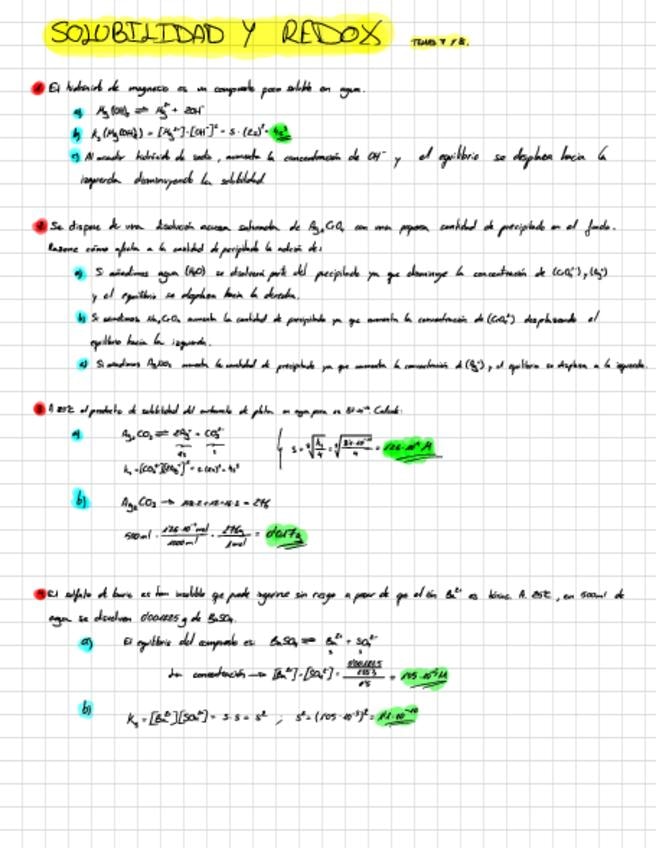 SOLUBILIDAD Y REDOX TEMAS 7 Y 8.
1 El hidróxido de magnesio es un compuesto poco soluble en agua.
a) Mg(OH)₂ ⇌ Mg²⁺ + 2OH⁻
b) Ks (Mg(OH)₂) = [Mg²⁺]·[OH⁻]² = s·(2s)² = 4s³
c) Al añadir hidróxido de sodio, aumenta la concentración de OH⁻ y el equilibrio se desplaza hacia la
izquierda disminuyendo la solubilidad
2 Se dispone de una disolución acuosa saturada de Ag₂CrO₄ con una pequeña cantidad de precipitado en el fondo.
Razone cómo afecta a la cantidad de precipitado la adición de:
a) Si añadimos agua (H₂O) se disolverá parte del precipitado ya que disminuye la concentración de (CrO₄²⁻), (Ag⁺)
y el equilibrio se desplaza hacia la derecha.
b) Si añadimos Na₂CrO₄ aumenta la cantidad de precipitado ya que aumenta la concentración de (CrO₄²⁻) desplazando el
equilibrio hacia la izquierda.
c) Si añadimos AgNO₃ aumenta la cantidad de precipitado ya que aumenta la concentración de (Ag⁺), y el equilibrio se desplaza a la izquierda.
3 A 25ºC el producto de solubilidad del carbonato de plata en agua pura es 8'1·10⁻¹² Calcule:
a) Ag₂CO₃ ⇌ 2Ag⁺ + CO₃²⁻
2s s
s = ∛Ks/4 = ∛8'1·10⁻¹²/4 = 1'26·10⁻⁴ M
ks = [CO₃²⁻][Ag⁺]² = s·(2s)² = 4s³
b) Ag₂CO₃ → 108·2+12+16·3 = 276
500ml · 1'26·10⁻⁴mol/1000ml · 276g/1mol = 0'017g
4 El sulfato de bario es tan insoluble que puede ingerirse sin riesgo a pesar de que el ión Ba²⁺ es tóxico. A 25ºC, en 500ml de
agua se disuelven 0'001225 g de BaSO₄.
a) El equilibrio del compuesto es: BaSO₄ ⇌ Ba²⁺ + SO₄²⁻
s s
La concentración → [Ba²⁺] = [SO₄²⁻] = = 1'05·10⁻⁵ M
b) Ks = [Ba²⁺][SO₄²⁻] = s·s = s² ; s² = (1'05·10⁻⁵)² = 1'1·10⁻¹⁰